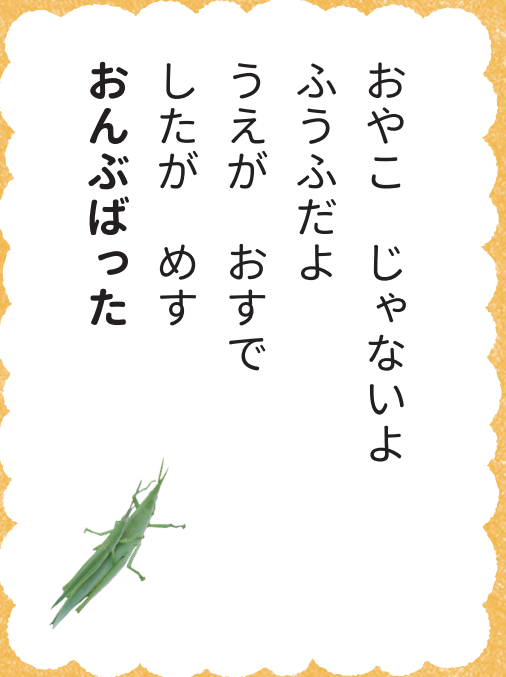 おやこ　じゃないよ
ふうふだよ
うえが　おすで
したが　めす
おんぶばった